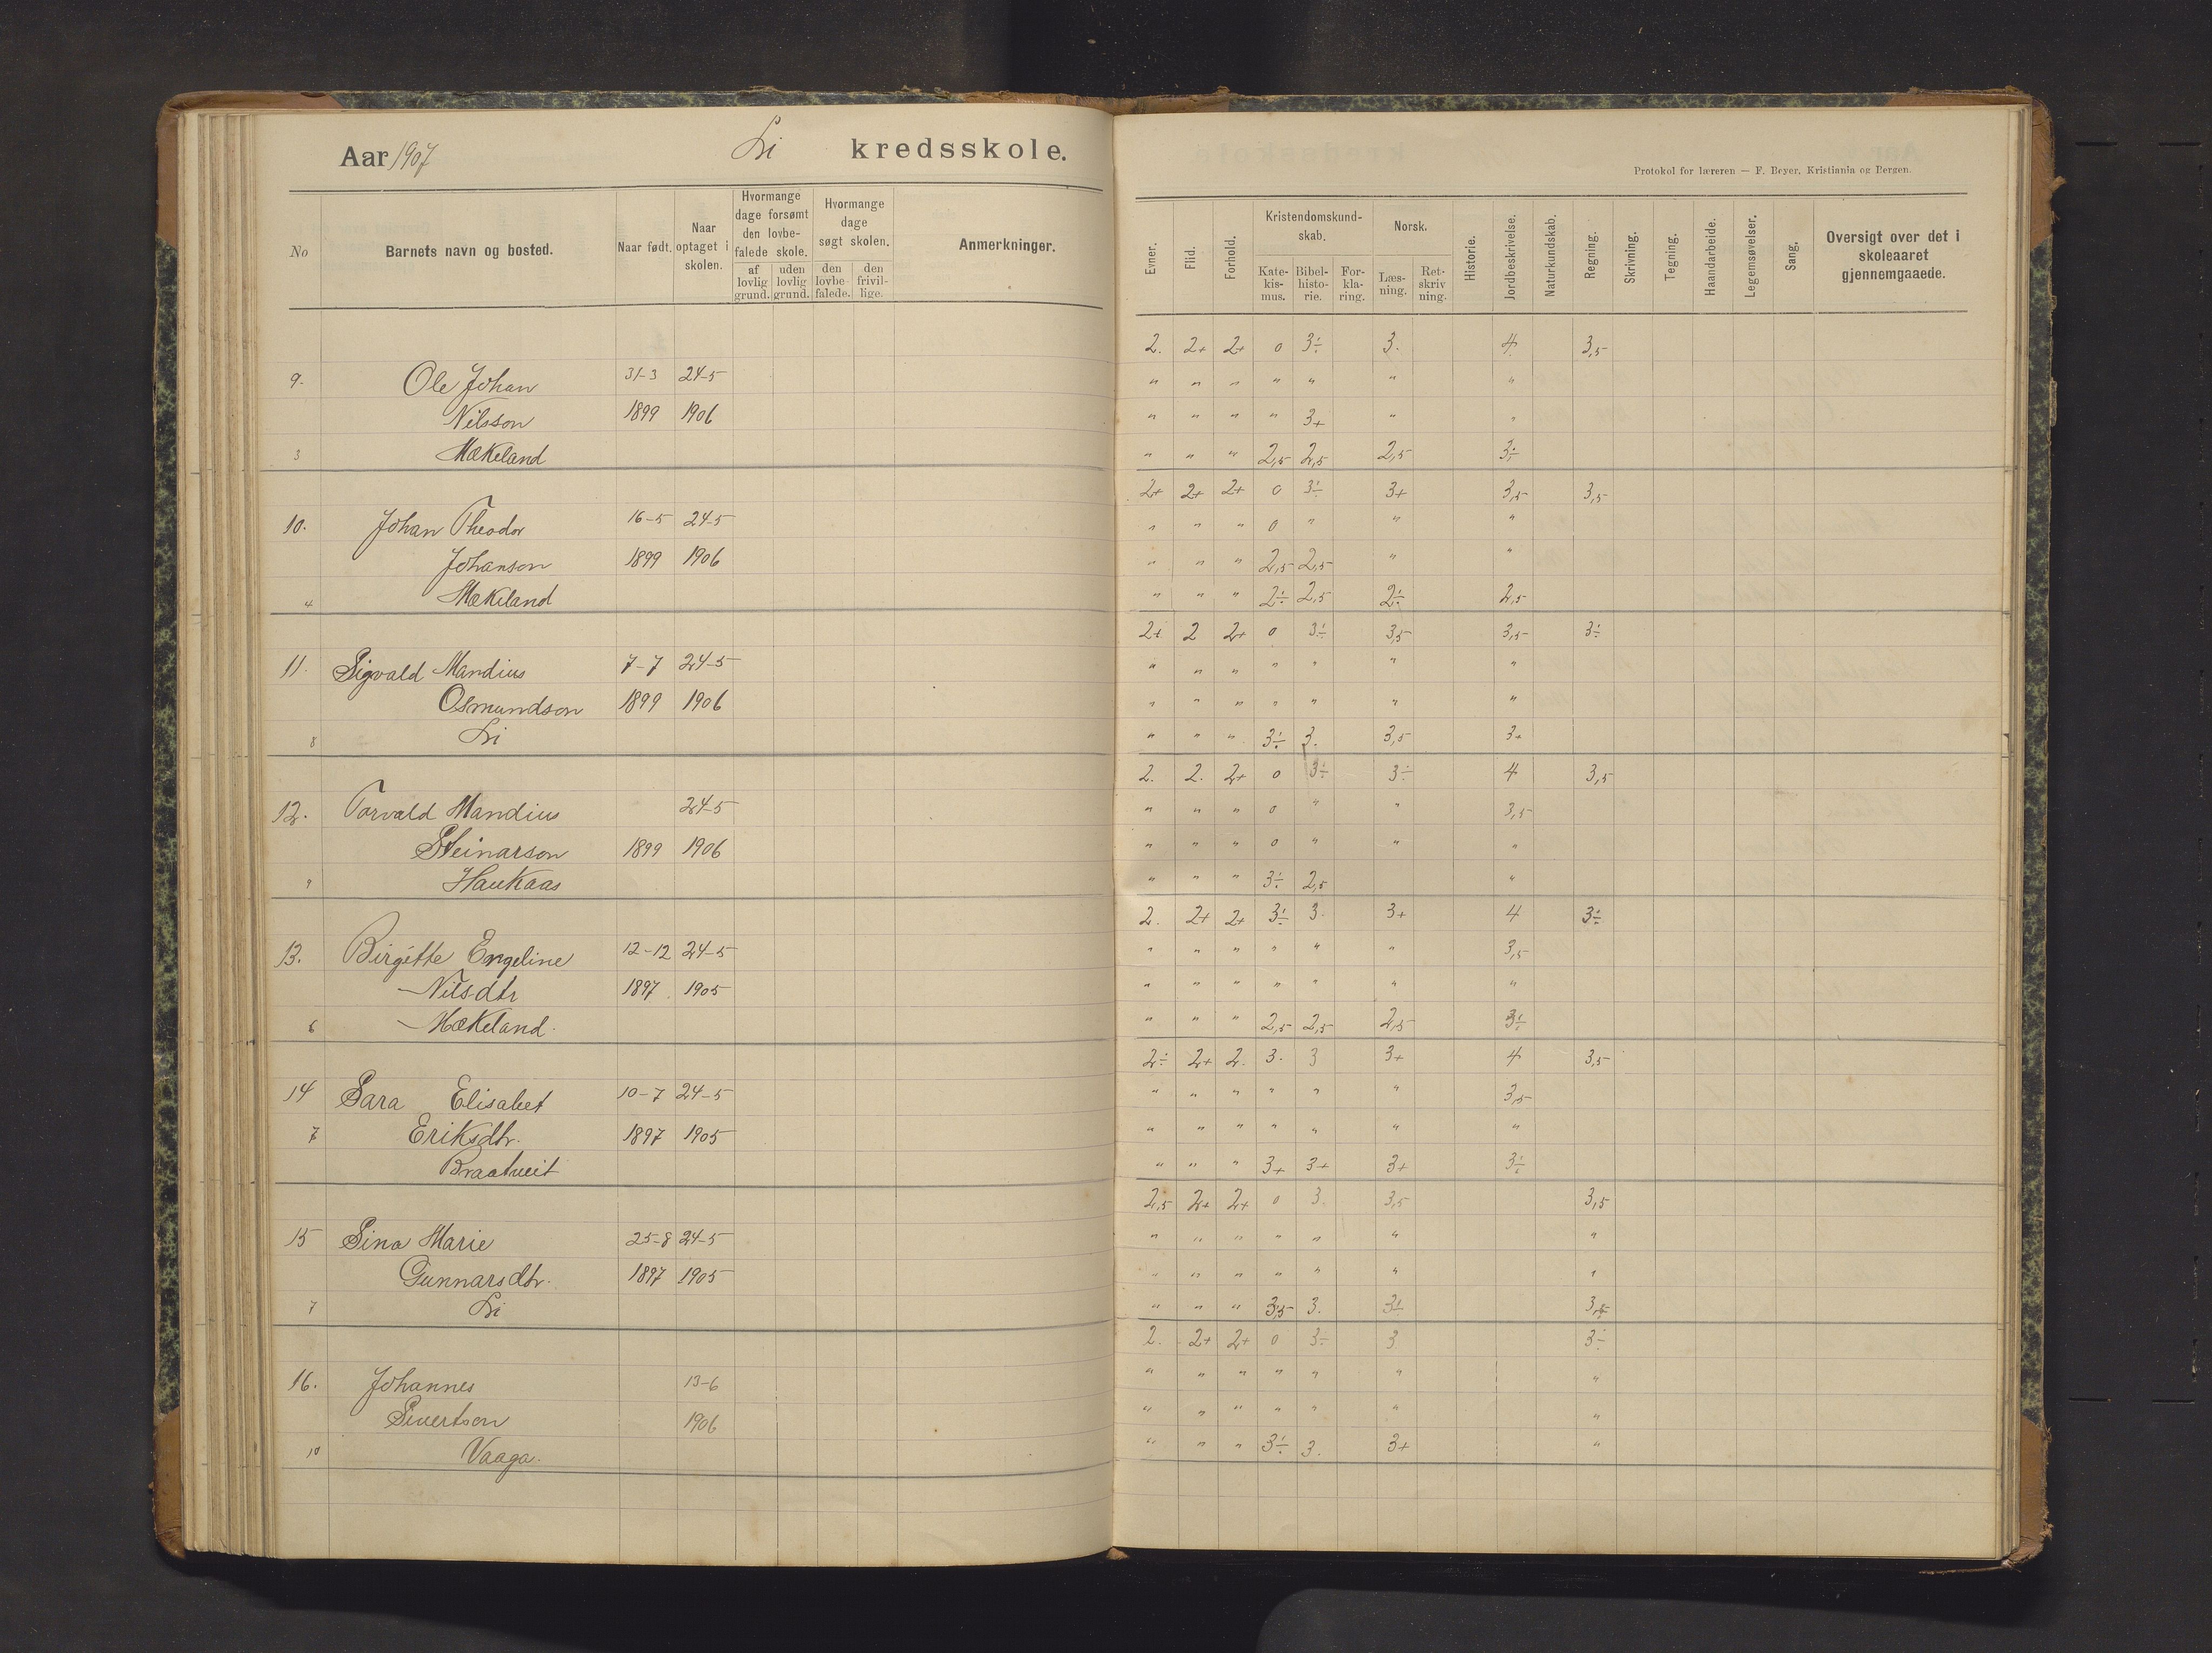 Aar 1907 Li kredsskole.
Protokol for læreren — F. Beyer. Kristiania og Bergen.
No
Barnets navn og bosted.
Naar født.
Naar optaget i skolen.
Hvormange dage forsømt den lovbefalede skole.
af lovlig grund.
uden lovlig grund.
Hvormange dage søgt skolen.
den lovbefalede.
den frivillige.
Anmerkninger.
Evner.
Flid.
Forhold.
Kristendomskundskab.
Katekismus.
Bibelhistorie.
Forklaring.
Norsk.
Læsning.
Retskrivning.
Historie.
Jordbeskrivelse.
Naturkundskab.
Regning.
Skrivning.
Tegning.
Haandarbeide.
Legemsøvelser.
Sang.
Oversigt over det i skoleaaret gjennemgaaede.
2. 2+ 2+ 0 3÷ 3. 4 3,5
9. Ole Johan 31-3 24-5 " " " " " " "
Nilsson 1899 1906 " " " " 3+ " "
3 Mækeland " " " 2,5 2,5 2,5 3÷
2+ 2+ 2+ 0 3÷ 3+ 3,5 3,5
10. Johan Theodor 16-5 24-5 " " " 0 " " "
Johanson 1899 1906 " " " 2,5 2,5 " "
4 Mækeland " " " 2÷ 2,5 2÷ 2,5
2+ 2 2+ 0 3÷ 3,5 3,5 3÷
11. Sigvald Mandius 7-7 24-5 " " " " " " "
Osmundson 1899 1906 " " " " " " "
8 Li " " " 3÷ 3. 3,5 3+
2. 2. 2+ 0 3÷ 3÷ 4 3,5
12. Torvald Mandius 24-5 " " " 0 " " 3,5
Steinarson 1899 1906 " " " 0 " " "
9 Haukaas " " " 3÷ 2,5 "
2. 2+ 2+ 3÷ 3. 3+ 4 3÷
13. Birgitte Engeline 12-12 24-5 " " " " " " 3,5
Nilsdtr 1897 1905 " " " " " " "
6 Mækeland. " " " 2,5 2,5 2,5 3÷
2÷ 2+ 2. 3. 3 3+ 4 3,5
14 Sara Elisabet 10-7 24-5 " " " " " " 3,5
7 Eriksdtr. 1897 1905 " " " " " " "
Braatveit " " " 3+ 3+ 3+ 3÷
2,5 2+ 2+ 0 3. 3,5 3,5
15 Sina Marie 25-8 24-5 " " " " " " "
Gunnarsdtr. 1897 1905 " " " " " " "
7 Li " " " 3,5 3. 3÷
2. 2+ 2+ 0 3÷ 3 3÷
16. Johannes 13-6 " " " " " " "
Sivertson 1906 " " " " " " "
10 Vaaga. " " " 3÷ 3. 3+ "